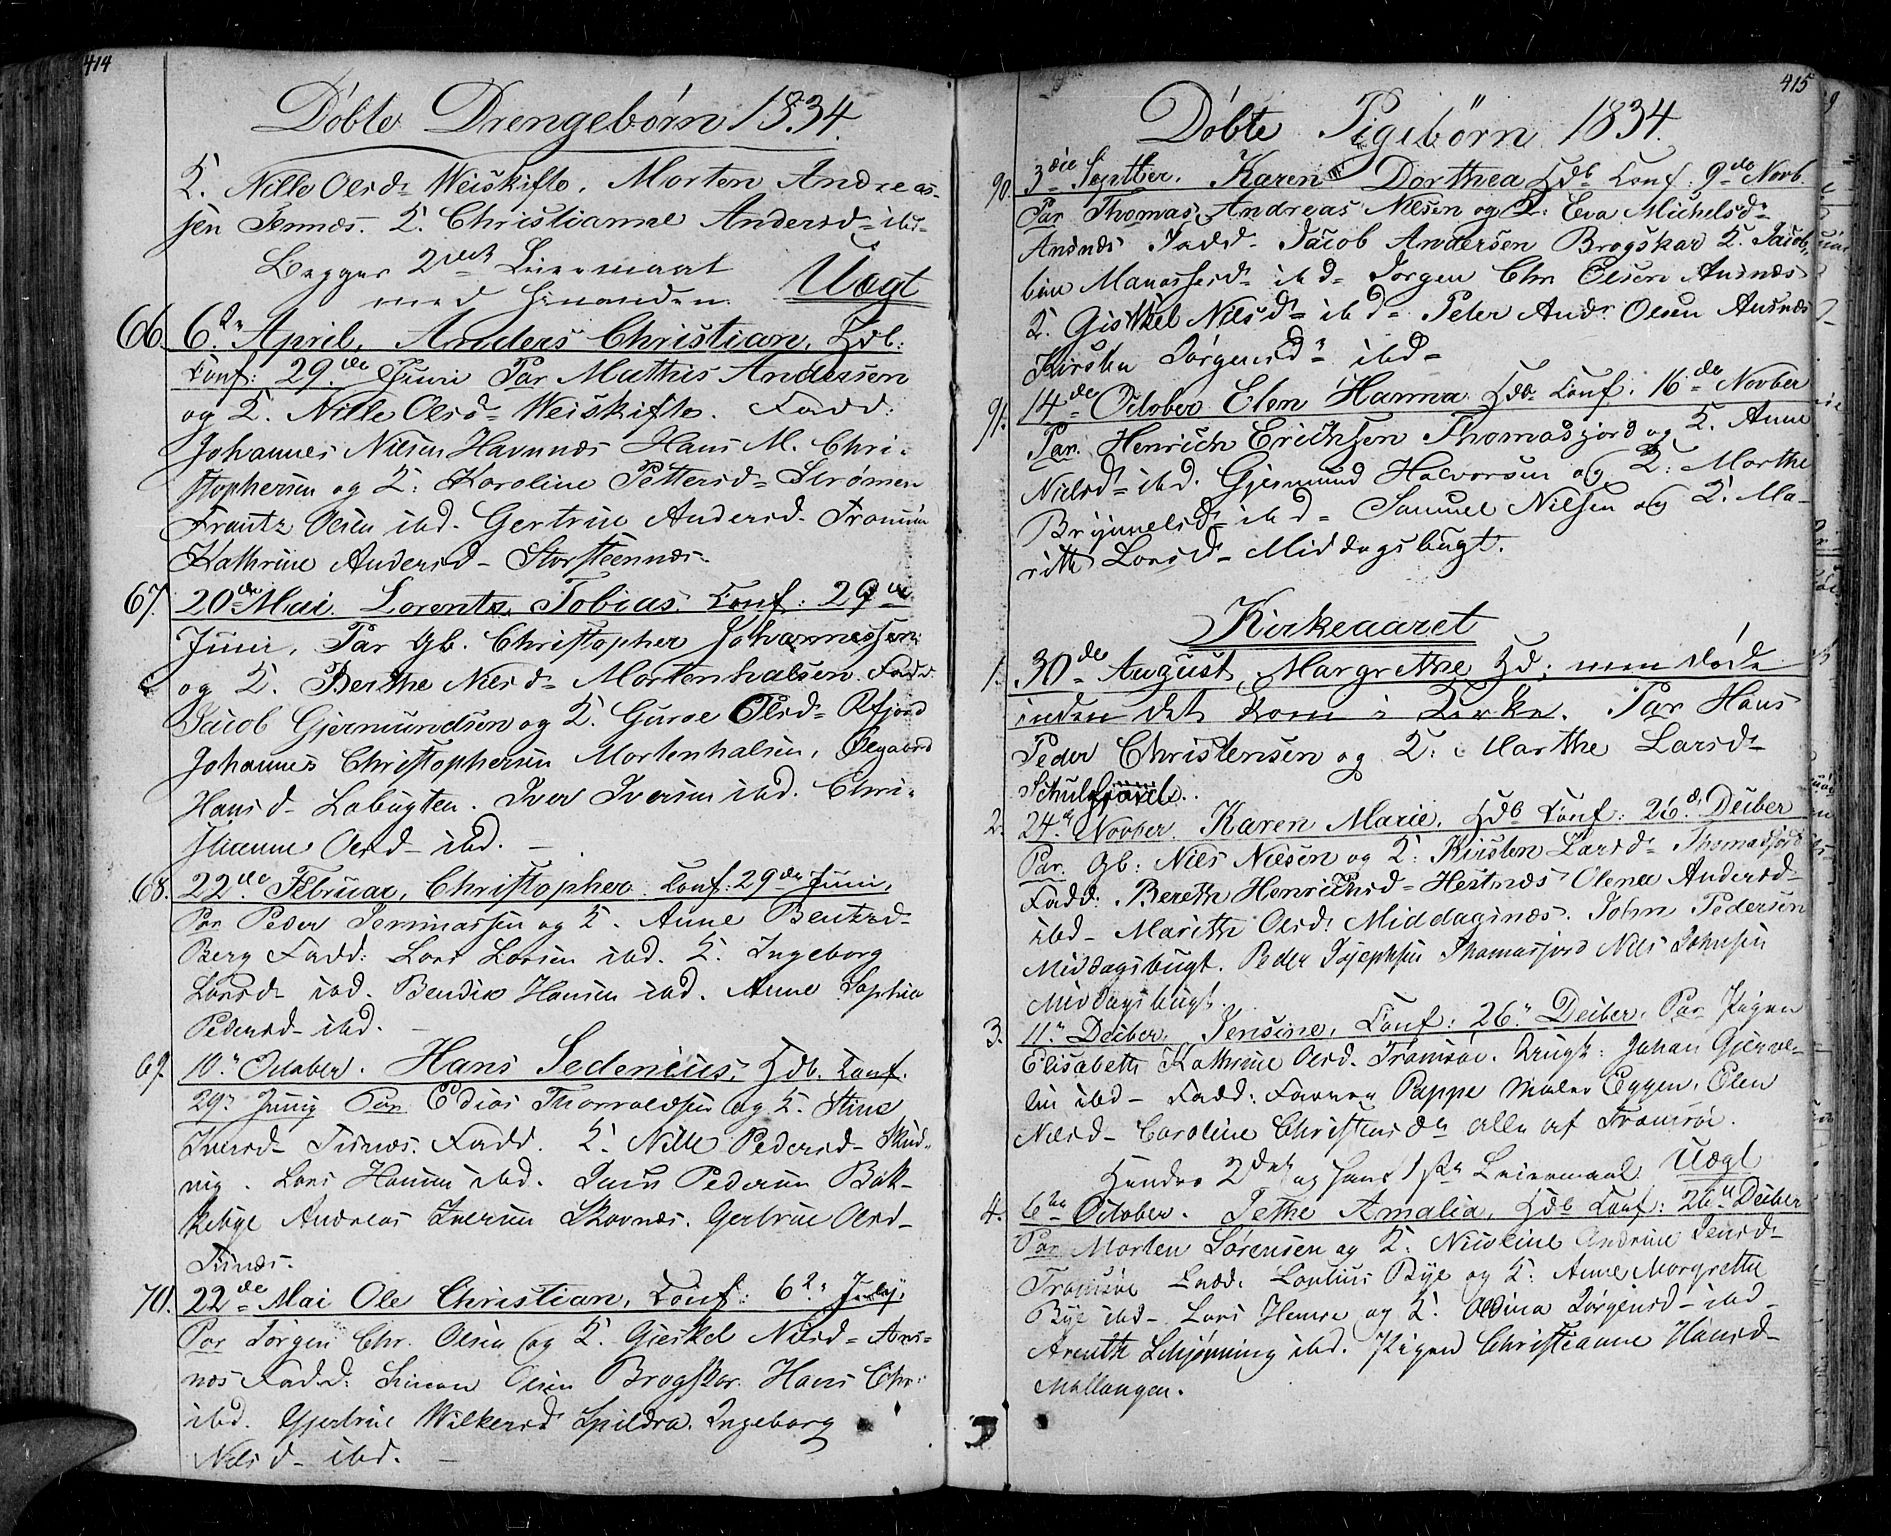 414
Döbte Drengebørn 1834.
K. Nille Olsd. Weiskifte, Morten Andreas-
sen Jennes. K. Christianne Andersd. ibd.
Begges 2det Leiermaal Uægt
med hinanden.
66. 6te April, Anders Christian, Hdb.
Conf: 29de Juni Par Mathis Andersen
og K. Nille Olsd. Weiskifte. Fadd:
Johannes Nilsen Havnnæs Hans M. Chri-
stophersen og K: Karoline Pettersd. Strømen
Frantz Olsen ibd. Gertrue Andersd.
Kathrine Andersd. Storsteennæs
67. 20de Mai Lorentz Tobias. Conf: 29de
Juni, Par Gb. Christopher Johannessen
og K. Berthe Nilsd. Mortenhalsen. Fadd.
Jacob Gjermundsen og K. Guroe Olsd.
Johannes Christophersen Mortenhalsen,
Hansd. Lobugten. Iver Iversen ibd. Chri-
stianne Olsd. ibd.
68. 22de Februar, Christopher Conf: 29de Juni,
Par Peder Jemmassen og K. Anne Bentsd.
Berg Fadd: Lars Larsen ibd. K. Ingeborg
Larsd. ibd. Bendix Hansen ibd. Anne Sophia
Pedersd. ibd.
69. 10de October. Hans Sedenius, Hdb. Conf.
29de Junij Par Edias Thorvaldsen og K. Stine
Iversd. Fadd. K. Nille Pedersd.
Lars Hansen ibd. Pedersen Bak-
kebye Andreas Iversen Skovnæs. Gertrue Olsd.
70. 22de Mai Ole Christian, Conf: 6te Julij.
Par Jørgen Chr. Olsen og K. Gieskel Nilsd. Ans-
næs Fadd: Simon Olsen Brogskar. Hans Chr:
ibd. Gjertrue Wilkersd. Spildra. Ingeborg
Nilsd. ibd.
415
Döbte Pigebörn 1834.
90. 3die Septber. Karen Dorthea Hdb Conf: 9de Novb.
Par Thomas Andreas Nilsen og K: Eva Michelsd.
Ansnæs Fadd. Jacob Andersen Brogskar K. Jacob-
bine Manassesd. ibd. Jørgen Chr Olsen Ansnæs
K. Giskel Nilsd. ibd. Peter Andr. Olsen Ansnæs
Kirsten Jørgensd. ibd.
91. 14de October Elen Hanna Hdb. Conf: 16de Novber
Par. Henrich Erichsen Thomasjord og K. Anne
Nielsd. ibd. Gjermund Halvorsen og K: Marthe
Brynnelsd. ibd. Samuel Nilsen og K. Ma-
rith Larsd. Middagsbugt.
Kirkeaaret
1. 30de August, Margrethe Hd: men døde
inden det kom i Kirke. Par Hans
Peder Christensen og K: Marthe Larsd.
2. 24de Novber. Karen Marie, Hdb Conf: 26de Decber
Par Gb: Nils Nilsen og K: Kirsten Larsd. Thomasjord
Fadd: Bereth Henrichsd. Hestnæs Olenea Andersd.
ibd. Marith Olsd: Middagsnæs. John Pedersen
Middagsbugt. Peder Josephsen Thomasjord Nils Johnsen
Middagsbugt.
3. 11te Decber, Jensine, Conf: 26de Decber. Par Pigen
Elisabeth Kathrine Olsd. Tromsøe. Johan
ibd. Fadd: Pappe Maler Eggen. Elen
Nilsd. Caroline Christensdr alle af Tromsøe.
Hendes 2det og hans 1ste Leiermaal Uægt
4. 6te October. Jethe Amalia, Hdb Conf: 26de Decber
Par Morten Sørensen og K. Nicoline Andrine Jensd.
Tromsøe Fadd. Bye og K: Anne Margrethe
Bye ibd. Lars og K. Oldina Jørgensd. ibd.
Arenth Schjønning ibd. Pigen Christianne Hansd.
Mallangen.